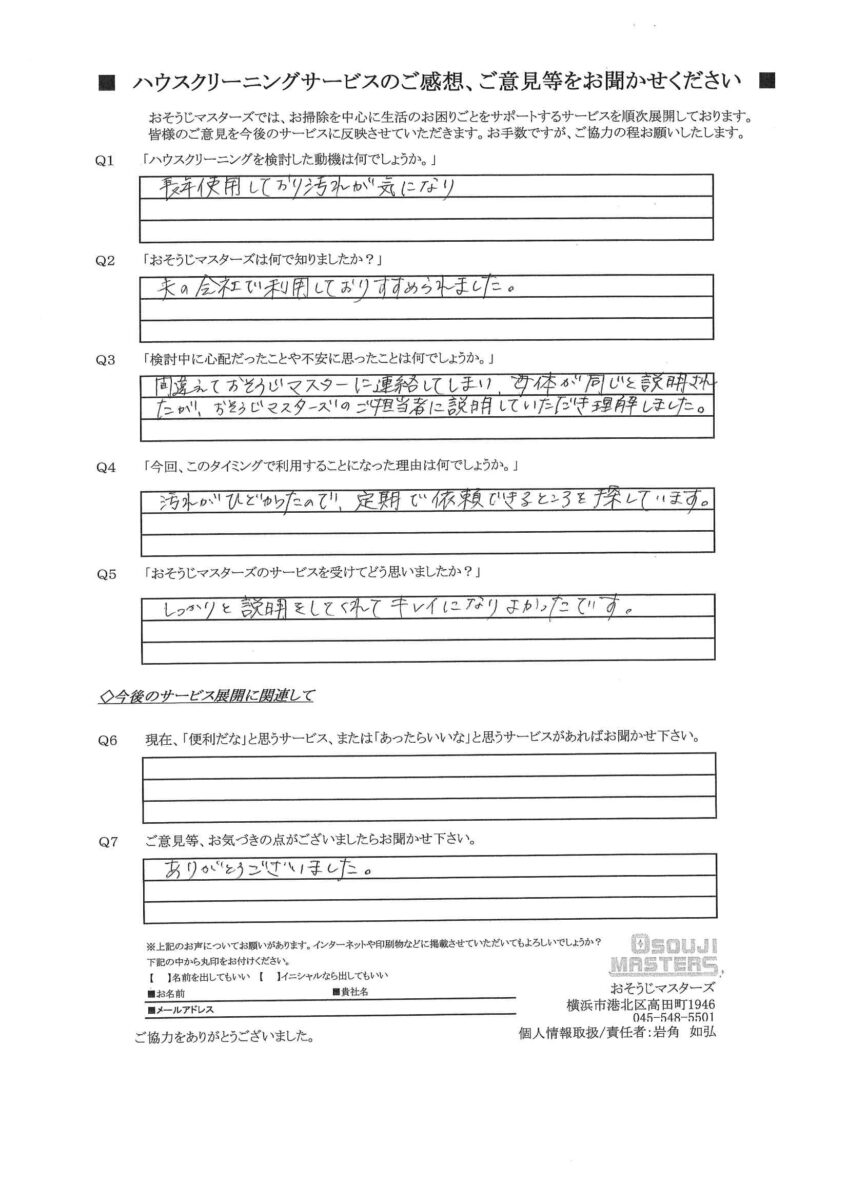 ■ ハウスクリーニングサービスのご感想、ご意見等をお聞かせください ■
おそうじマスターズでは、お掃除を中心に生活のお困りごとをサポートするサービスを順次展開しております。
皆様のご意見を今後のサービスに反映させていただきます。お手数ですが、ご協力の程お願いしたします。
Q1 「ハウスクリーニングを検討した動機は何でしょうか。」
長年使用しており汚れが気になり
Q2 「おそうじマスターズは何で知りましたか？」
夫の会社で利用しておりすすめられました。
Q3 「検討中に心配だったことや不安に思ったことは何でしょうか。」
間違えておそうじマスターに連絡してしまい、母体が同じと説明され
たが、おそうじマスターズのご担当者に説明していただき理解しました。
Q4 「今回、このタイミングで利用することになった理由は何でしょうか。」
汚れがひどかったので、定期で依頼できるところを探しています。
Q5 「おそうじマスターズのサービスを受けてどう思いましたか？」
しっかりと説明をしてくれてキレイになりよかったです。
◇今後のサービス展開に関連して
Q6 現在、「便利だな」と思うサービス、または「あったらいいな」と思うサービスがあればお聞かせ下さい。
Q7 ご意見等、お気づきの点がございましたらお聞かせ下さい。
ありがとうございました。
※上記のお声についてお願いがあります。インターネットや印刷物などに掲載させていただいてもよろしいでしょうか？
下記の中から丸印をお付けください。
【 】名前を出してもいい 【 】イニシャルなら出してもいい
■お名前 ■貴社名
■メールアドレス
ご協力をありがとうございました。
OSOUJI
MASTERS
おそうじマスターズ
横浜市港北区高田町1946
045-548-5501
個人情報取扱/責任者：岩角 如弘